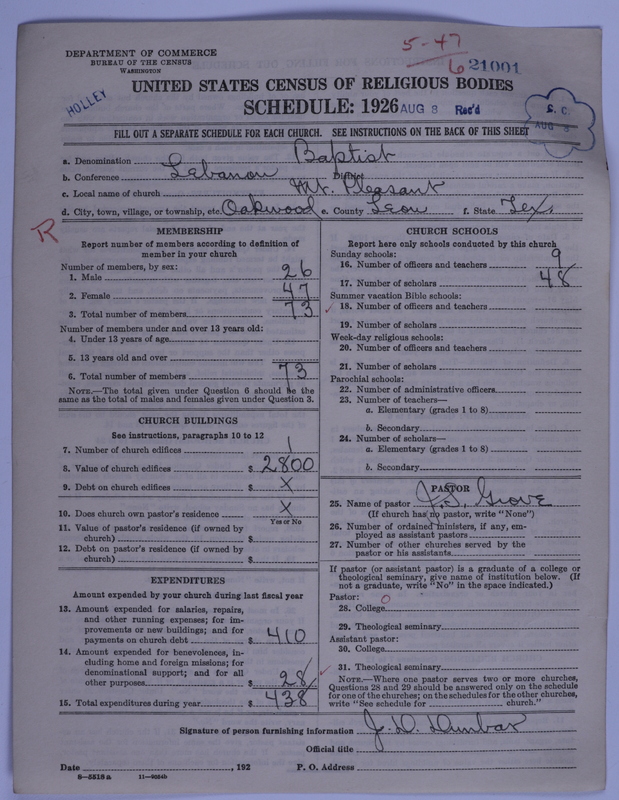 DEPARTMENT OF COMMERCE
BUREAU OF THE CENSUS
WASHINGTON
5-47
6 21001
UNITED STATES CENSUS OF RELIGIOUS BODIES
HOLLEY
SCHEDULE: 1926 AUG 8 Rec'd
S. C.
AUG 8
FILL OUT A SEPARATE SCHEDULE FOR EACH CHURCH. SEE INSTRUCTIONS ON THE BACK OF THIS SHEET
a. Denomination Baptist
b. Conference Lebanon District
c. Local name of church Mt. Pleasant
d. City, town, village, or township, etc. Oakwood e. County Leon f. State Tex.
R
MEMBERSHIP
Report number of members according to definition of
member in your church
Number of members, by sex:
1. Male 26
2. Female 47
3. Total number of members 73
Number of members under and over 13 years old:
4. Under 13 years of age
5. 13 years old and over
6. Total number of members 73
NOTE.—The total given under Question 6 should be the
same as the total of males and females given under Question 3.
CHURCH BUILDINGS
See instructions, paragraphs 10 to 12
7. Number of church edifices 1
8. Value of church edifices $ 2800
9. Debt on church edifices $ X
10. Does church own pastor's residence X
Yes or No
11. Value of pastor's residence (if owned by
church) $
12. Debt on pastor's residence (if owned by
church) $
EXPENDITURES
Amount expended by your church during last fiscal year
13. Amount expended for salaries, repairs,
and other running expenses; for im-
provements or new buildings; and for
payments on church debt $ 410
14. Amount expended for benevolences, in-
cluding home and foreign missions; for
denominational support; and for all
other purposes $ 28
15. Total expenditures during year $ 438
CHURCH SCHOOLS
Report here only schools conducted by this church
Sunday schools:
16. Number of officers and teachers 9
17. Number of scholars 48
Summer vacation Bible schools:
18. Number of officers and teachers
19. Number of scholars
Week-day religious schools:
20. Number of officers and teachers
21. Number of scholars
Parochial schools:
22. Number of administrative officers
23. Number of teachers—
a. Elementary (grades 1 to 8)
b. Secondary
24. Number of scholars—
a. Elementary (grades 1 to 8)
b. Secondary
PASTOR
25. Name of pastor J. S. Grove
(If church has no pastor, write "None")
26. Number of ordained ministers, if any, em-
ployed as assistant pastors
27. Number of other churches served by the
pastor or his assistants
If pastor (or assistant pastor) is a graduate of a college or
theological seminary, give name of institution below. (If
not a graduate, write "No" in the space indicated.)
Pastor: 0
28. College
29. Theological seminary
Assistant pastor:
30. College
31. Theological seminary
NOTE.—Where one pastor serves two or more churches,
Questions 28 and 29 should be answered only on the schedule
for one of the churches; on the schedules for the other churches,
write "See schedule for church."
Signature of person furnishing information J. D. Dunbar
Official title
Date , 192 P. O. Address
8-5518a 11-9054b